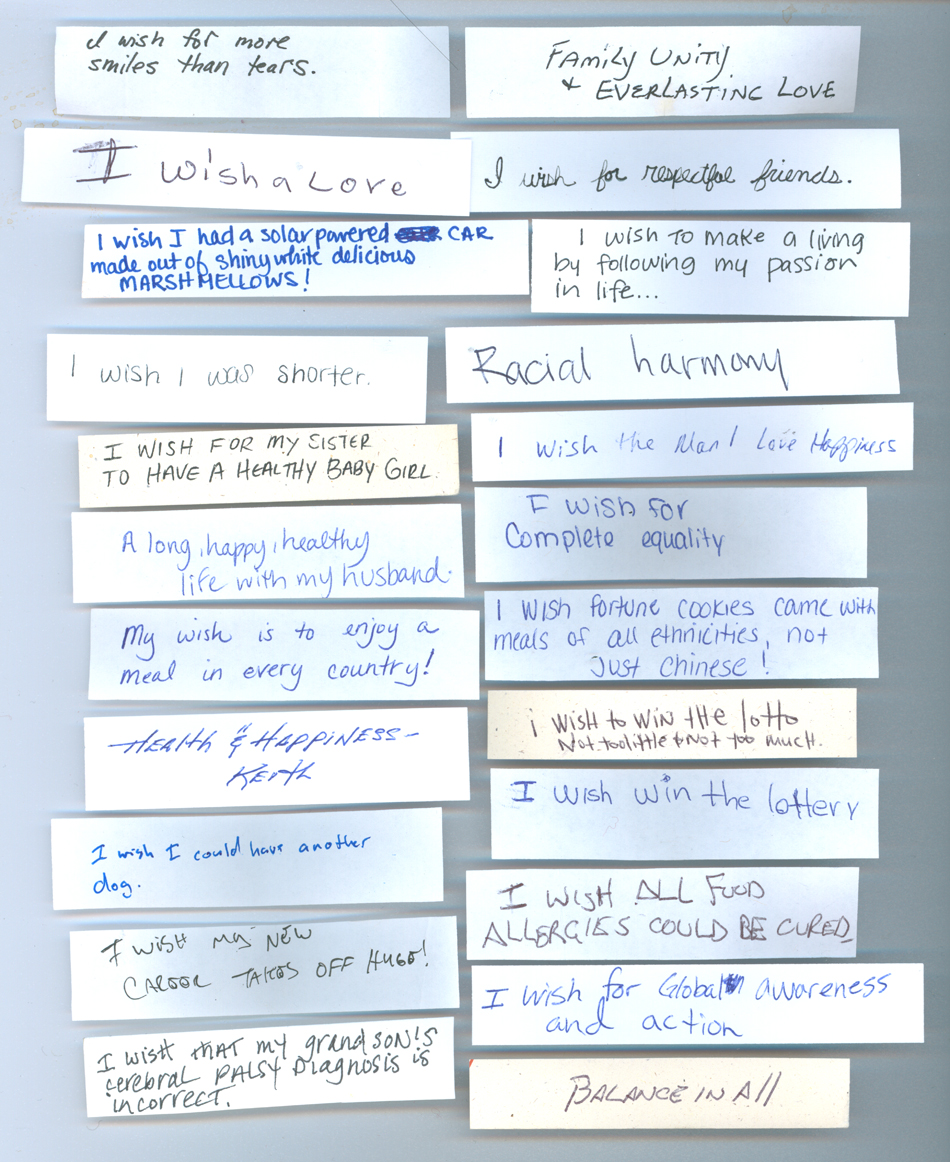 I wish for more
smiles than tears.
FAMILY UNITY
+ EVERLASTING LOVE
I wish a Love
I wish for respectful friends.
I wish I had a solar powered CAR
made out of shiny white delicious
MARSHMELLOWS!
I wish to make a living
by following my passion
in life...
I wish I was shorter.
Racial harmony
I WISH FOR MY SISTER
TO HAVE A HEALTHY BABY GIRL.
I wish the Man I Love Happiness
A long, happy, healthy
life with my husband.
I wish for
Complete equality
My wish is to enjoy a
meal in every country!
I wish fortune cookies came with
meals of all ethnicities, not
Just Chinese!
HEALTH & HAPPINESS-
KEITH
i WISH to WIN tHE lotto
Not too little & Not too much.
I wish win the lottery
I wish I could have another
dog.
I WISH ALL FOOD
ALLERGIES COULD BE CURED.
I WISH MY NEW
CAREER TAKES OFF HUGE!
I wish for Global awareness
and action
I WISH THAT my grandson's
cerebral PALSY Diagnosis is
incorrect.
BALANCE IN All